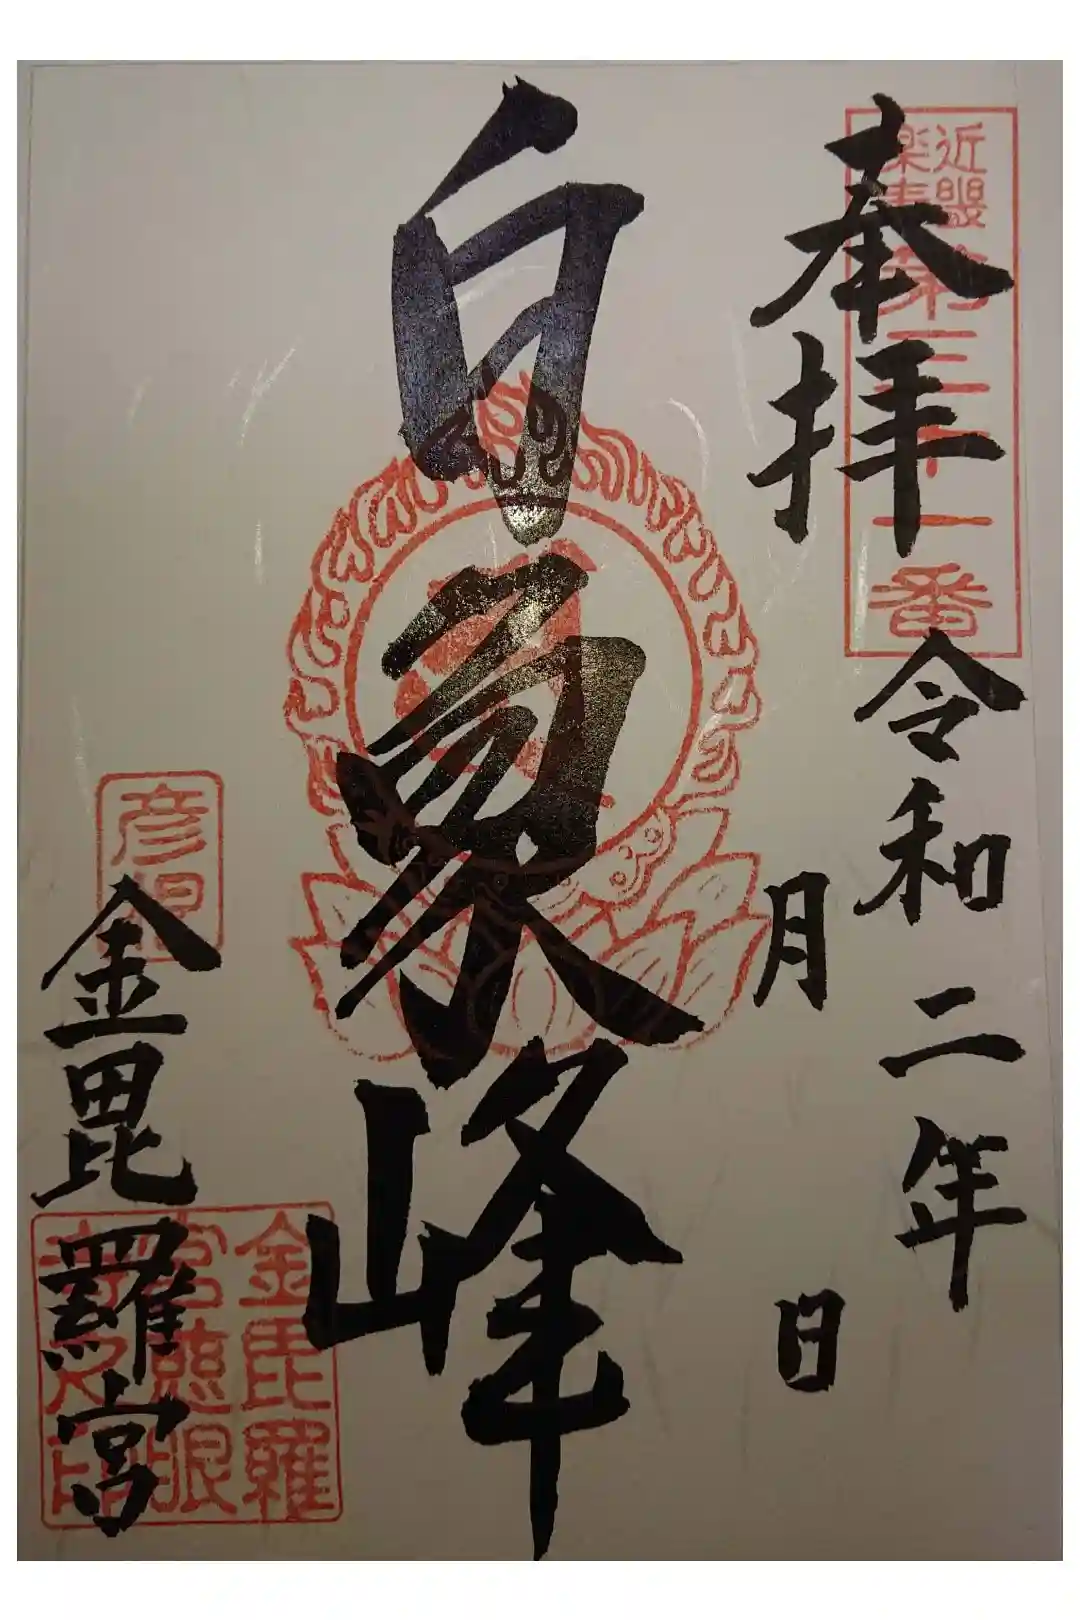 奉拝
令和二年
月
日
白象峰
金毘羅宮
近畿
楽寿
第三十一番
彦
金毘羅
宮慈眼
寺之印